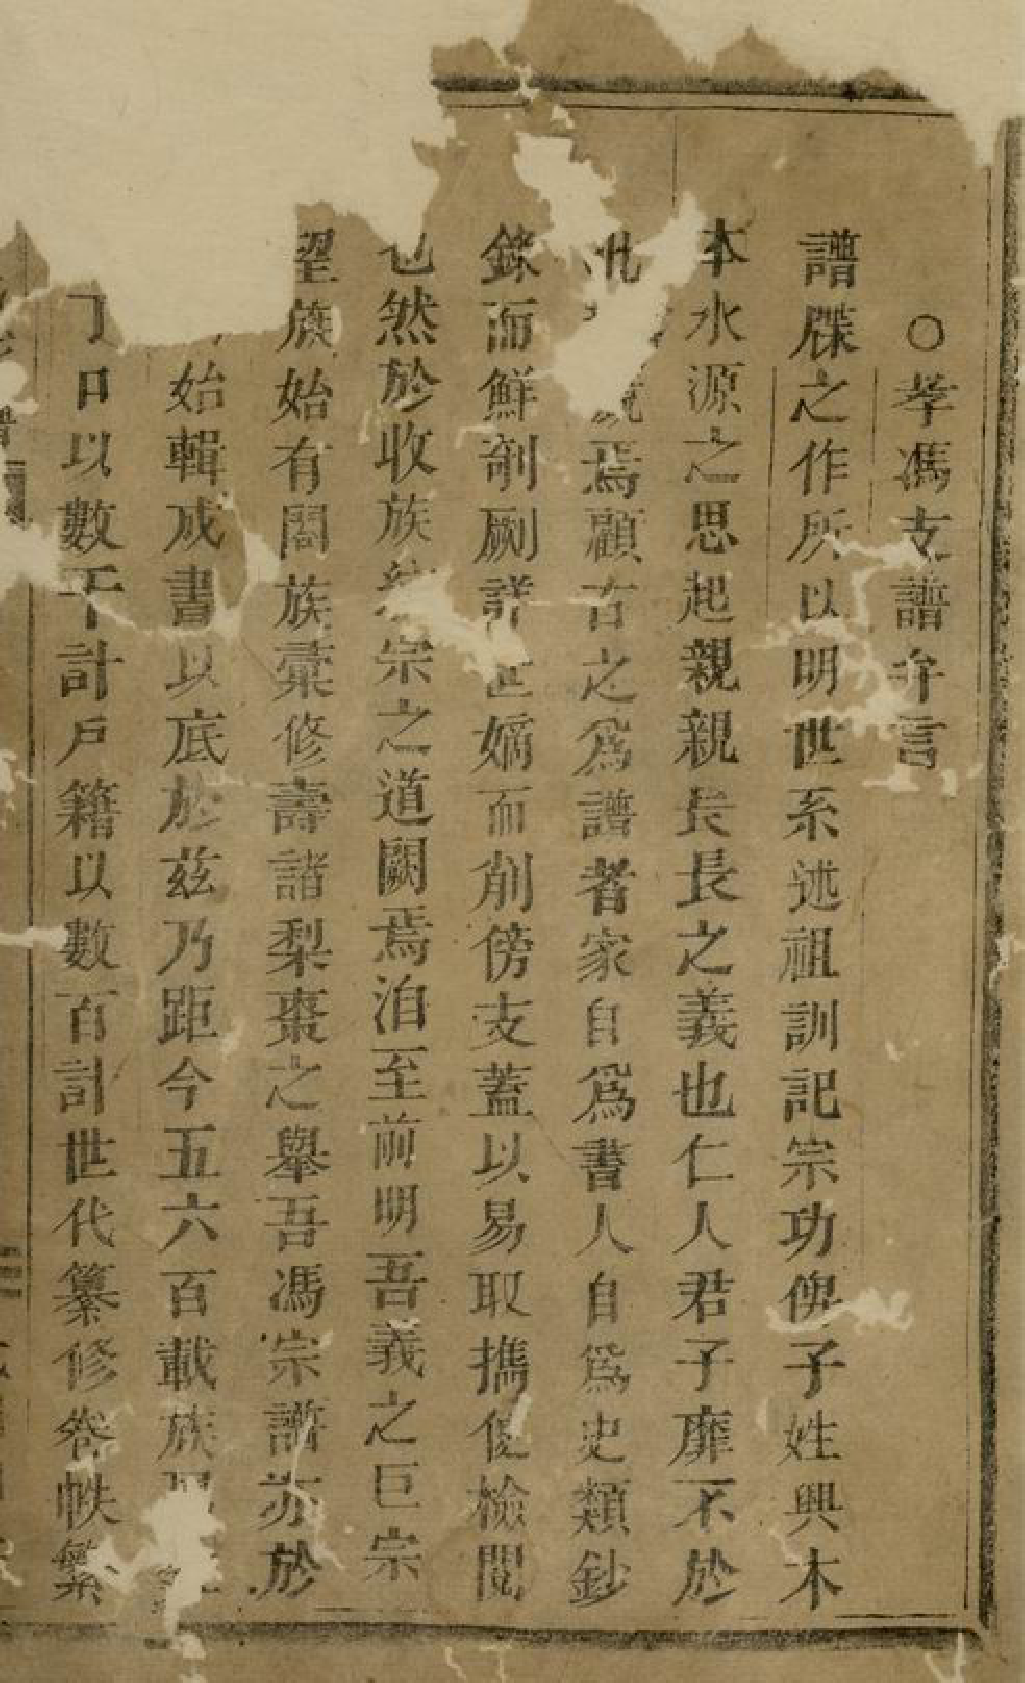 ○孝馮支譜弁言
譜牒之作所以明世系述祖訓記宗功俾子姓興木
本水源之思起親親長長之義也仁人君子靡不於
焉顧古之為譜者家自為書人自為史類鈔
錄而鮮剞劂詳世嫡而削傍支蓋以易取攜便檢閱
也然於收族宗之道闕焉洎至前明吾義之巨宗
望族始有閤族彙修壽諸梨棗之舉吾馮宗譜亦於
始輯成書以底於茲乃距今五六百載族
口以數千計戶籍以數百計世代纂修卷帙繁